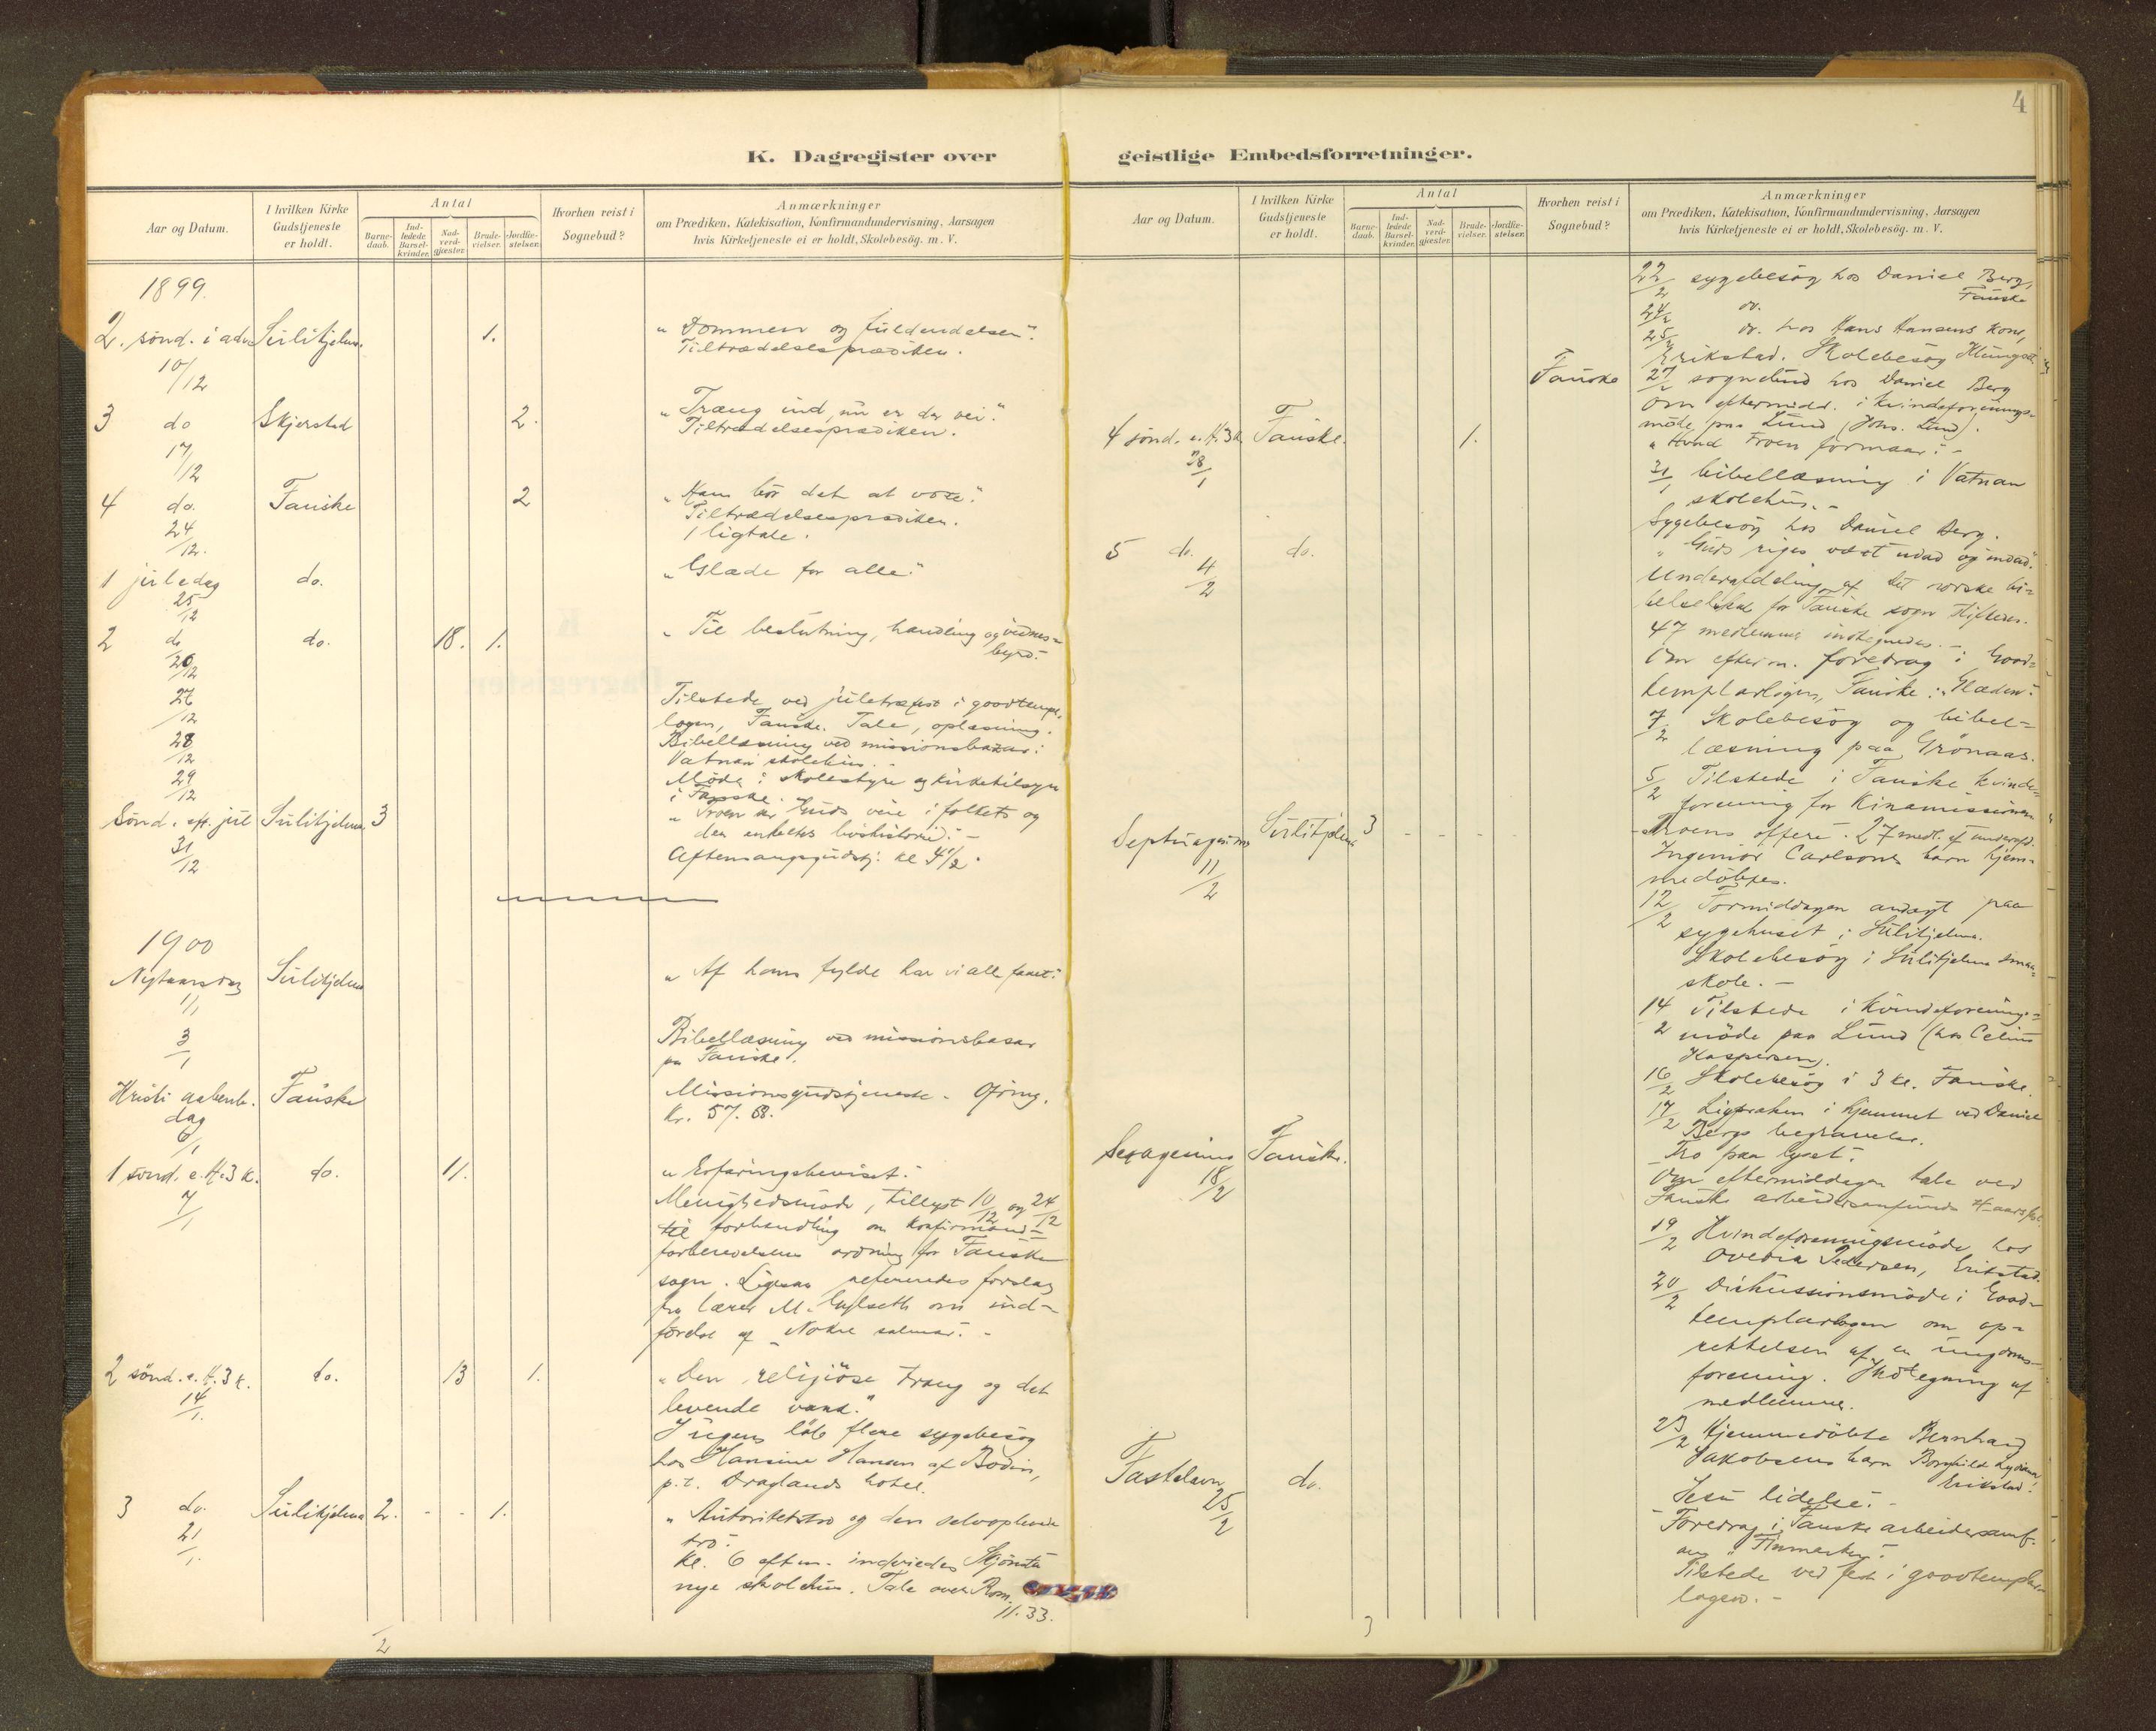 4
K. Dagregister over
Aar og Datum.
I hvilken Kirke Gudstjeneste er holdt.
Antal
Barnedaab.
Indledede Barselkvinder.
Nadverdgjæster.
Brudevielser.
Jordfæstelser.
Hvorhen reist i Sognebud?
Anmærkninger
om Prædiken, Katekisation, Konfirmandundervisning, Aarsagen
hvis Kirketjeneste ei er holdt, Skolebesög. m. V.
1899.
2. sönd. i adv. Sulitjelma. 1. "Dommen og fuldendelsen".
10/12 Tiltrædelsesprædiken.
3 do Skjerstad 2. "Træng ind, nu er der vei".
17/12 Tiltrædelsesprædiken.
4 do. Fauske 2 "Ham bör det at voxe".
24/12. Tiltrædelsesprædiken.
1 ligtale.
1 juledag do. "Glæde for alle".
25/12
2 do do. 18. 1. "Til beslutning, handling og vidnes=
26/12 byrd."
27/12 Tilstede ved juletræfest i goodtempl.
logen, Fauske. Tale, oplæsning.
28/12 Bibellæsning ved missionsbasar i
Vatnan skolehus. -
29/12 Möde i skolestyre og kirketilsyn
i Fauske.
Sönd. eft. jul Sulitjelma 3 "Troen ser Guds veie i folkets og
31/12 den enkeltes livshistorie". -
Aftensangsgudstj. kl 4 1/2.
1900
Nytaarsdag Sulitjelma "Af hans fylde har vi alle faaet".
1/1
3/1 Bibellæsning ved missionsbasar
paa Fauske.
Kristi aabenb. Fauske Missionsgudstjeneste. Ofring.
dag Kr. 57.68.
6/1
1 sönd. e. H. 3 K. do. 11. "Erfaringsbeviset".
7/1 Menighedsmöde, tillyst 10/12 og 24/12
til forhandling om konfirmand=
forberedelsens ordning for Fauske
sogn. Ligesaa refereredes forslag
fra lærer M. om ind=
förelse af "Nokre salmar". -
2 sönd. e. H. 3 K. do. 13 1. "Den religiöse trang og det
14/1. levende vand."
I ugens löb flere sygebesög
hos Hansine Hansen af Bodin,
p.t. Draglands hotel.
3 do. Sulitjelma 2. - - 1. "Autoritetstro og den selvoplevede
21/1. tro".
Kl. 6 eftm. indviedes Skjönstu
nye skolehus. Tale over Rom.
11.33.
2
geistlige Embedsforretninger.
Aar og Datum.
I hvilken Kirke Gudstjeneste er holdt.
Antal
Barnedaab.
Indledede Barselkvinder.
Nadverdgjæster.
Brudevielser.
Jordfæstelser.
Hvorhen reist i Sognebud?
Anmærkninger
om Prædiken, Katekisation, Konfirmandundervisning, Aarsagen
hvis Kirketjeneste ei er holdt, Skolebesög. m. V.
22/2 sygebesög hos Daniel Berg,
Fauske
24/2 do.
25/2 do. hos Hans Hansens kone,
Erikstad. Skolebesög
Fauske 27/2 sognebud hos Daniel Berg
Om eftermidd. i kvindeforenings=
möde paa Lund (Johs. Lund).
4 sönd. e. H. 3 K. Fauske. 1. "Hvad troen formaar". -
28/1
31/1 bibellæsning i Vatnan
skolehus. -
Sygebesög hos Daniel Berg.
5 do. do. "Guds riges vext udad og indad".
4/2 Underafdeling af det norske bi=
belselskab for Fauske sogn stiftedes.
47 medlemmer indtegnedes. -
Om efterm. foredrag i Good=
templarlogen, Fauske: "Glæden".
7/2 Skolebesög og bibel=
læsning paa Grönaas.
5/2 Tilstede i Fauske kvinde=
forening for Kinamissionen
Septuagesima Sulitjelma 3 - - - - "Troens offere". 27 medl. af underafd.
11/2 Ingeniör Carlsons barn hjem=
medöbtes.
12/2 Formiddagen andagt paa
sygehuset i Sulitjelma.
Skolebesög i Sulitjelma smaa=
skole. -
14/2 Tilstede i kvindeforenings=
möde paa Lund (hos Celius
Kaspersen).
16/2 Skolebesög i 3 kl. Fauske.
17/2 Ligtalen i hjemmet ved Daniel
Bergs begravelse.
Sexagesima Fauske. "Tro paa lyset".
18/2 Om eftermiddagen tale ved
Fauske arbeidersamfunds aarsfest.
19/2 Kvindeforeningsmöde hos
Ovedia Pedersen, Erikstad.
20/2 Diskussionsmöde i Good=
templarlogen om op=
rettelsen af en ungdoms=
forening. Indtegning af
medlemmer.
23/2 Hjemmedöbte Bernhard
Jakobsens barn Borghild Lydiana,
Erikstad.
Fastelavn do. "Jesu lidelse". -
25/2 Foredrag i Fauske arbeidersamf.
om "Finmarken".
Tilstede ved fest i goodtemplar=
logen. -
3